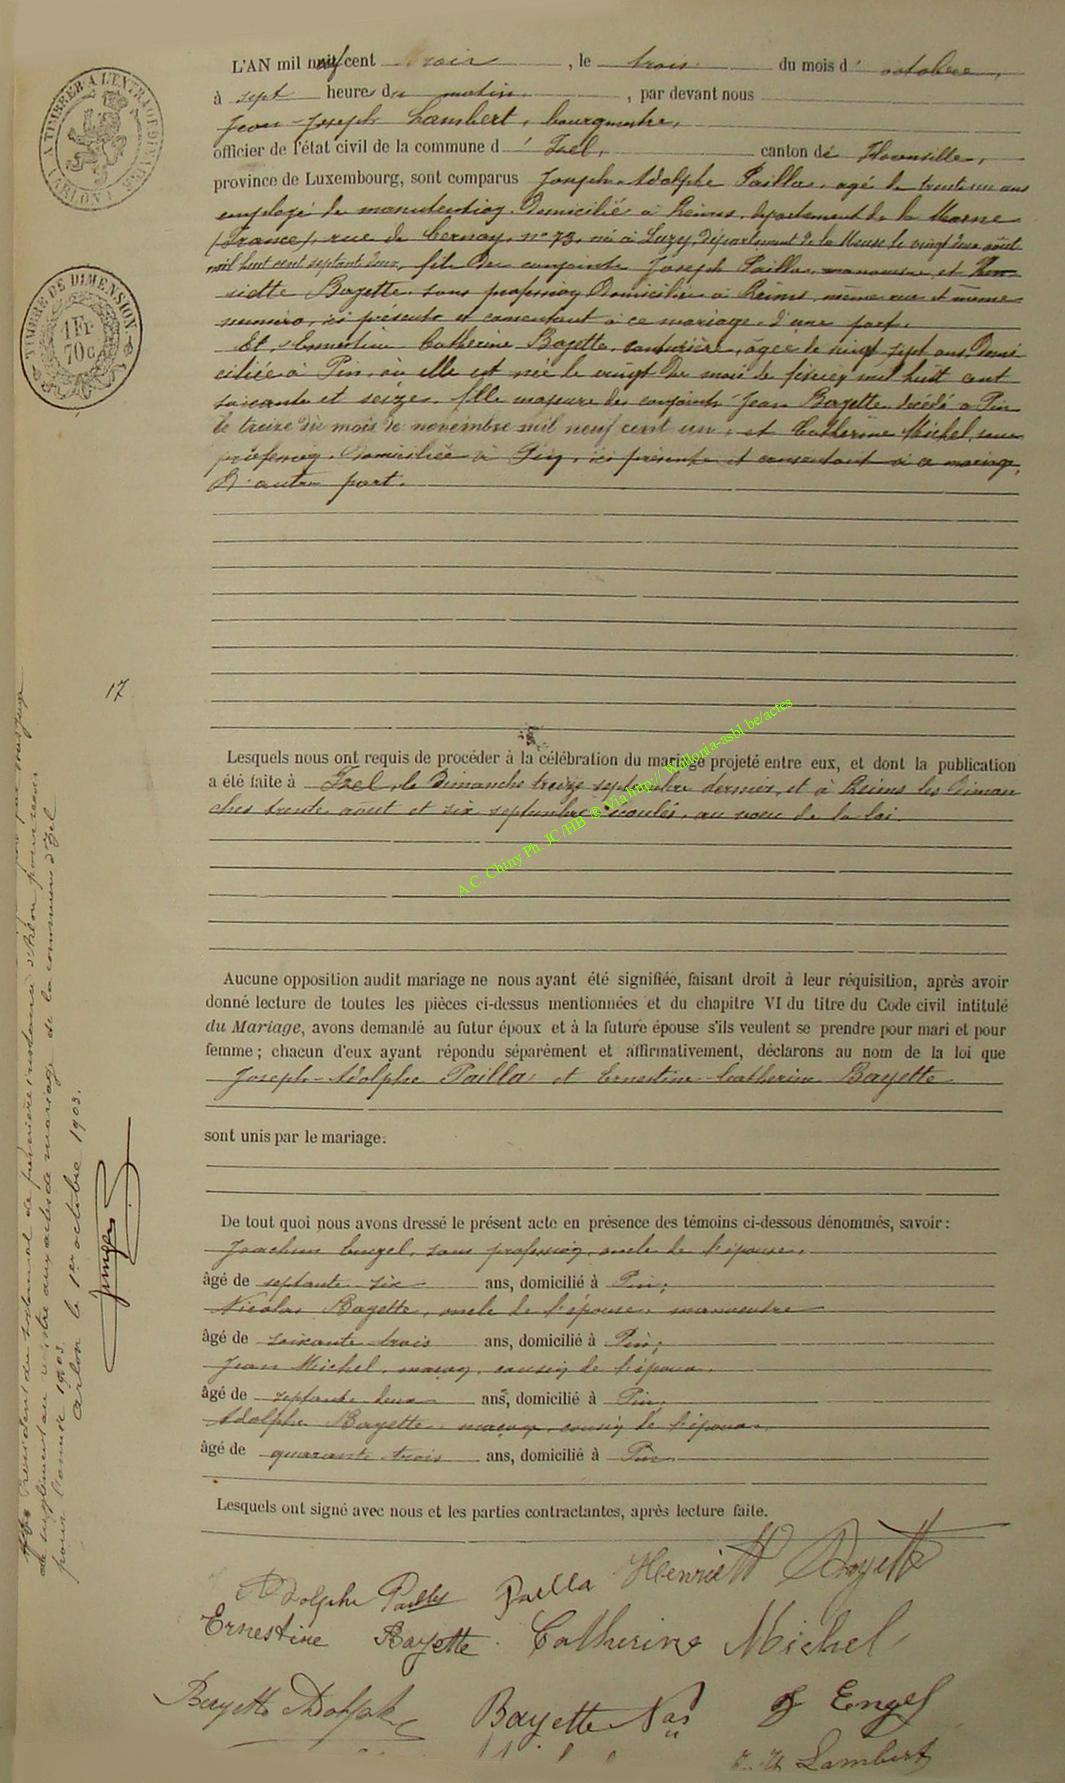 L'AN mil neuf cent trois, le trois du mois d'octobre,
à sept heures du matin, par devant nous
Jean-Joseph Lambert, bourgmestre,
officier de l'état civil de la commune d'Izel, canton de Florenville,
province de Luxembourg, sont comparus Joseph-Adolphe Pailla, agé de trente un ans
employé de manutention, domicilié à Reims, département de la Marne
(France), rue de Cernay, n° 73, né à Luzy, département de la Meuse le vingt deux août
mil huit cent septante deux, fils des conjoints Joseph Pailla, manoeuvre, et Hen-
riette Bayette, sans profession, domiciliés à Reims, même rue et même
numéro, ici présents et consentant à ce mariage, d'une part.
Et, Ernestine Catherine Bayette, couturière, âgée de vingt sept ans, domi-
ciliée à Pin, où elle est née le vingt du mois de février mil huit cent
soixante et seize, fille majeure des conjoints Jean Bayette, décédé à Pin
le treize du mois de novembre mil neuf cent un, et Catherine Michel, sans
profession, domiciliée à Pin, ici présente et consentant à ce mariage,
D'autre part.
Lesquels nous ont requis de procéder à la célébration du mariage projeté entre eux, et dont la publication
a été faite à Izel, le Dimanche treize septembre dernier, et à Reims les diman-
ches trente août et six septembre écoulés, au voeu de la loi.
Aucune opposition audit mariage ne nous ayant été signifiée, faisant droit à leur réquisition, après avoir
donné lecture de toutes les pièces ci-dessus mentionnées et du chapitre VI du titre du Code civil intitulé
du Mariage, avons demandé au futur époux et à la future épouse s'ils veulent se prendre pour mari et pour
femme ; chacun d'eux ayant répondu séparément et affirmativement, déclarons au nom de la loi que
Joseph-Adolphe Pailla et Ernestine Catherine Bayette
sont unis par le mariage.
De tout quoi nous avons dressé le présent acte en présence des témoins ci-dessous dénommés, savoir :
Joachim Engel, sans profession, oncle de l'épouse,
âgé de septante six ans, domicilié à Pin ;
Nicolas Bayette, oncle de l'épouse, manoeuvre
âgé de soixante trois ans, domicilié à Pin ;
Jean Michel, maçon, cousin de l'épouse,
âgé de septante deux ans, domicilié à Pin,
Adolphe Bayette, maçon, cousin de l'épouse,
âgé de quarante trois ans, domicilié à Pin.
Lesquels ont signé avec nous et les parties contractantes, après lecture faite.
Adolphe Pailla Pailla Henriette Bayette
Ernestine Bayette. Catherine Michel
Bayette Adolphe Bayette Nas J Engel
J. J. Lambert
TIMBRER A L'EXTRAORDINAIRE
(ARLON)
TIMBRE DE DIMENSION
1 Fr
70 c
17
Président du tribunal de première instance d'Arlon pour servir
de supplément au registre aux actes de mariage de la commune d'Izel
pour l'année 1903.
Arlon le 1er octobre 1903.
A.C. Chiny Ph. JC/HB @ Via http:// Wallonia-asbl.be/actes